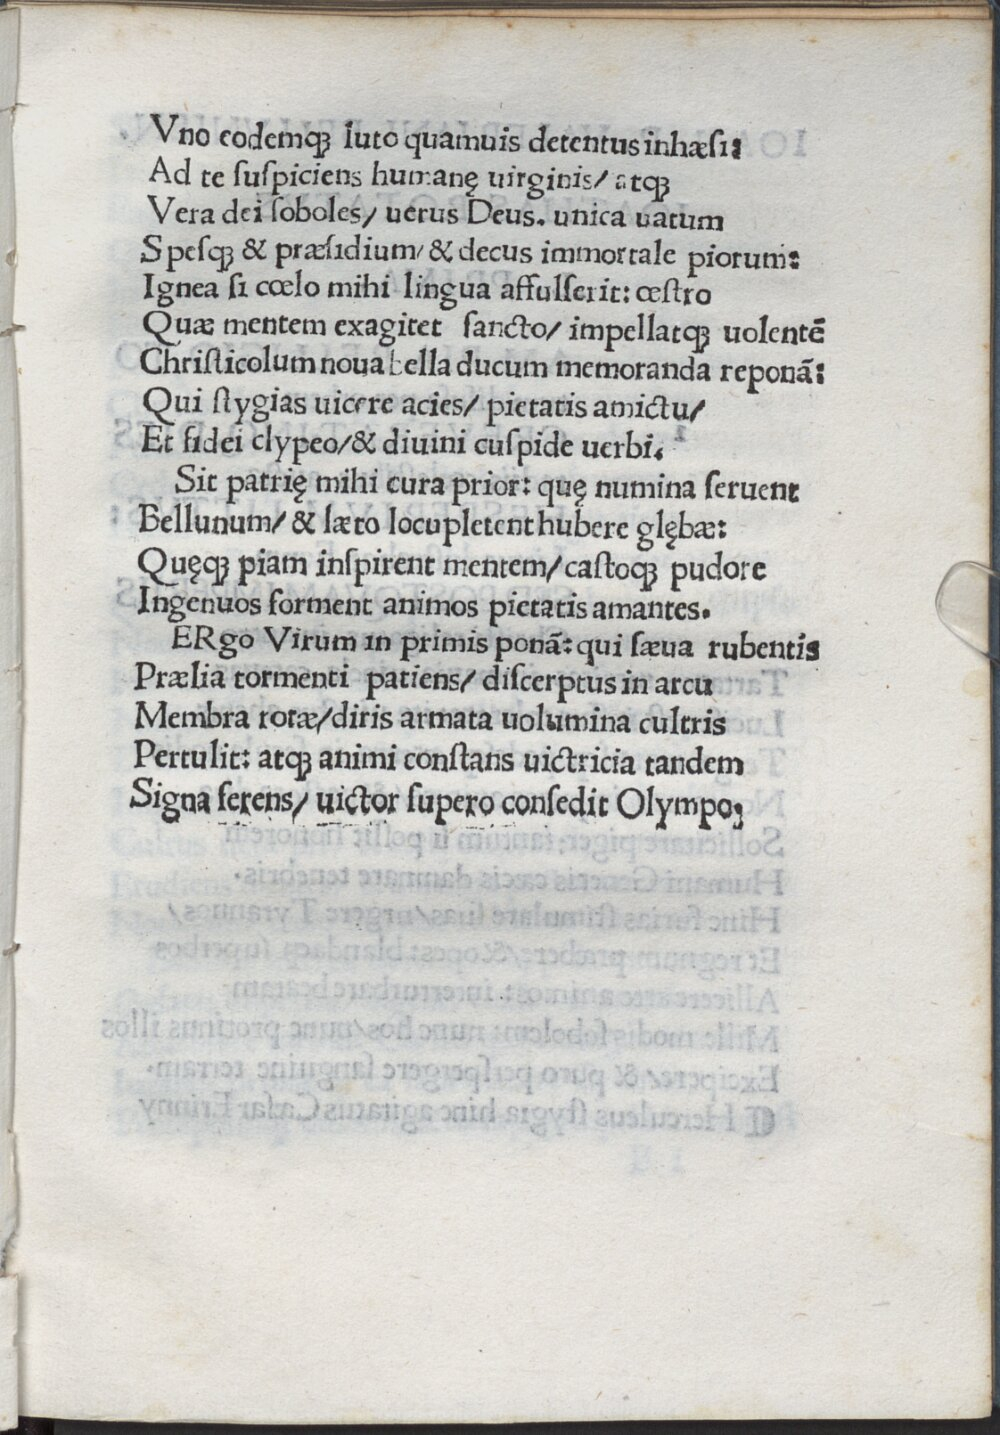 Vno eodemqꝫ luto quamuis detentus inhæsi:
Ad te suspiciens humanę uirginis/ atqꝫ
Vera dei soboles/ uerus Deus. unica uatum
Spesqꝫ & præsidium/ & decus immortale piorum:
Ignea si cœlo mihi lingua affulserit: œstro
Quæ mentem exagitet sancto/ impellatqꝫ uolentē
Christicolum noua bella ducum memoranda reponā:
Qui stygias uicere acies/ pietatis amictu/
Et fidei clypeo/ & diuini cuspide uerbi.
Sit patrię mihi cura prior: quę numina seruent
Bellunum/ & læto locupletent hubere glębæ:
Quęqꝫ piam inspirent mentem/ castoqꝫ pudore
Ingenuos forment animos pietatis amantes.
ERgo Virum in primis ponā: qui sæua rubentis
Prælia tormenti patiens/ discerptus in arcu
Membra rotæ/ diris armata uolumina cultris
Pertulit: atqꝫ animi constans uictricia tandem
Signa ferens/ uictor supero consedit Olympo;